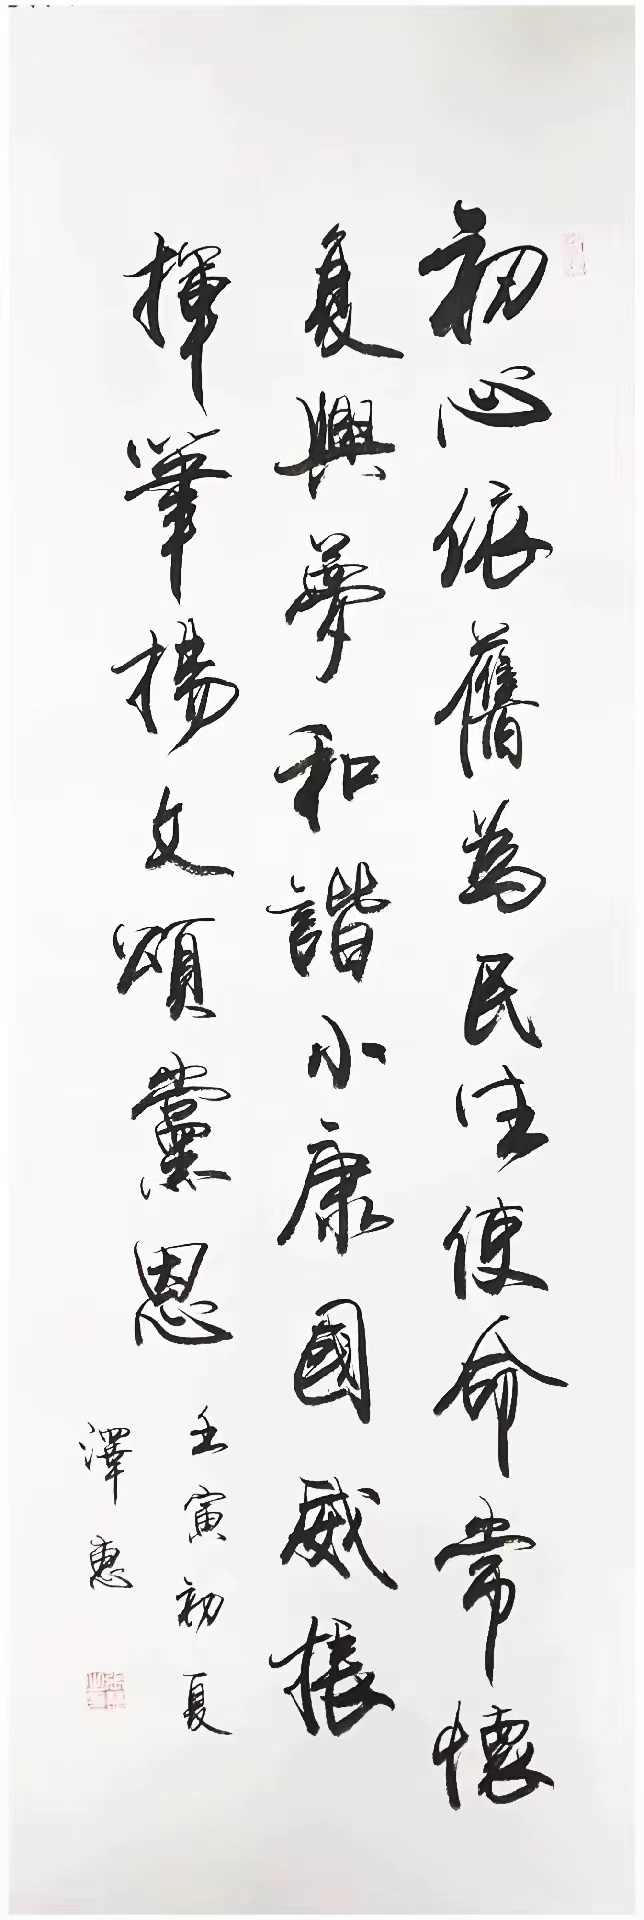 初心依舊為民生使命常懷
复興夢和諧小康國威振
揮筆揚文頌黨恩
壬寅初夏
澤惠